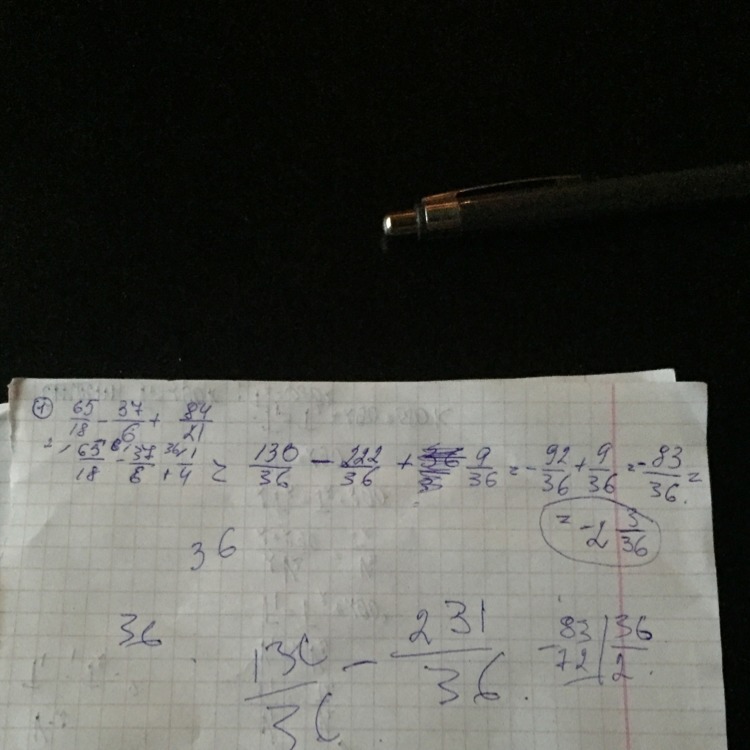 1) 65/18 - 37/6 + 84/21
= 65/18 - 37/6 + 1/4 = 130/36 - 222/36 + 9/36 = - 92/36 + 9/36 = - 83/36 =
= - 2 3/36
36
36
130/36 - 231/36.
83 | 36
72 | 2.